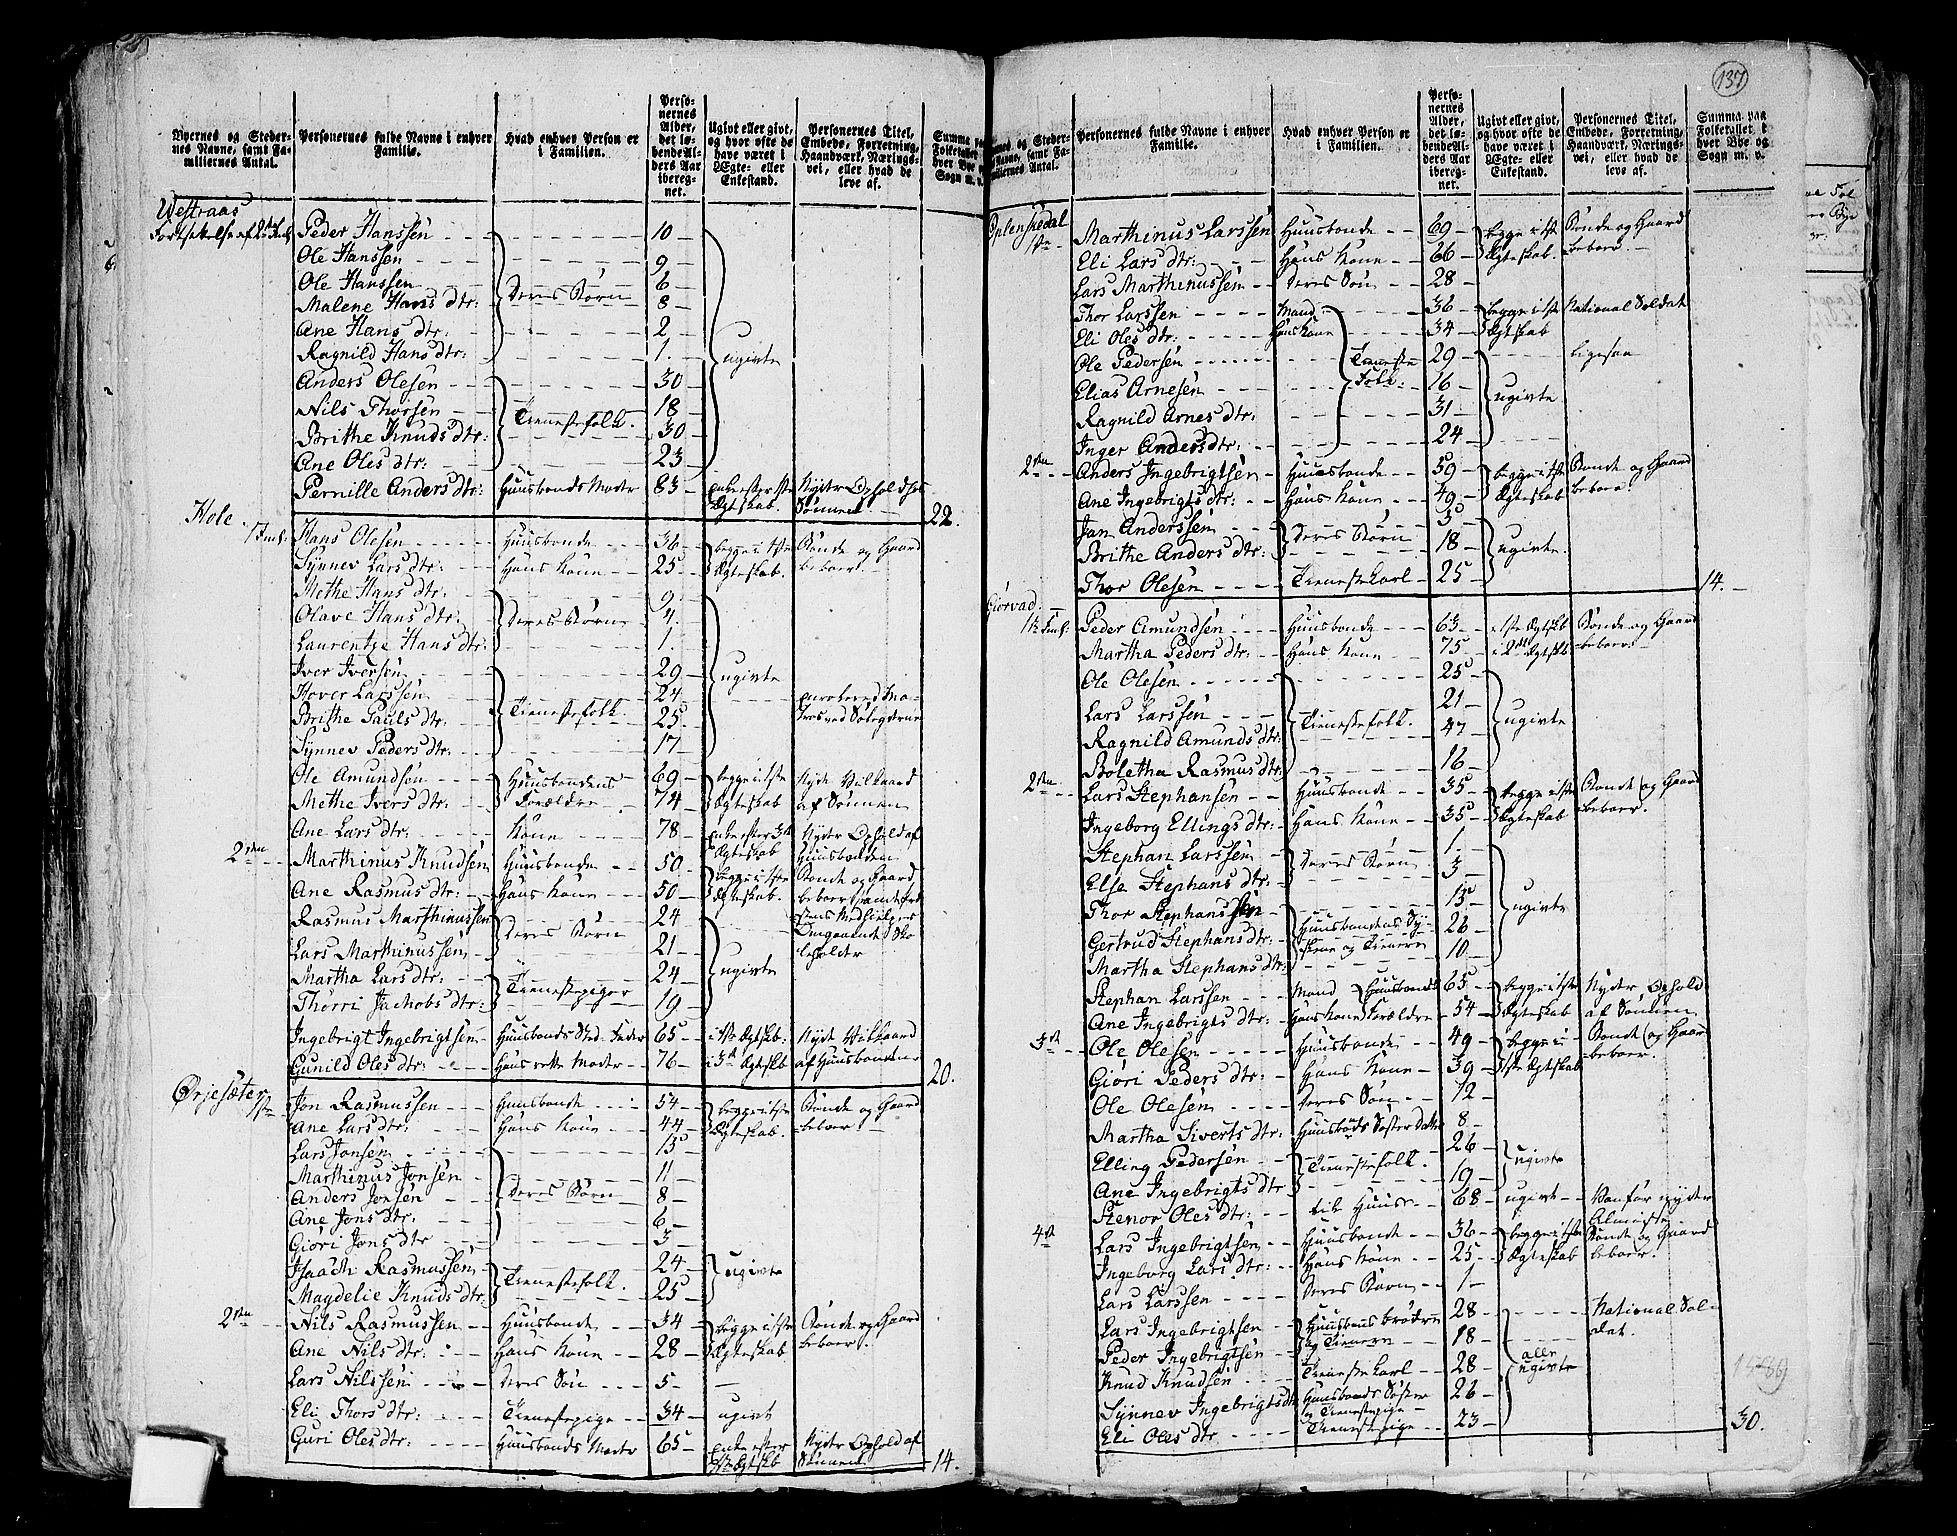 137
Byernes og Stedernes Navne, samt Familiernes Antal.
Personernes fulde Navne i enhver Familie.
Hvad enhver Person er i Familien.
Personernes Alder, det løbende Alders Aar iberegnet.
Ugivt eller givt, og hvor ofte de have været i Ægte- eller Enkestand.
Personernes Titel, Embede, Forretning, Haandværk, Næringsvei, eller hvad de leve af.
Summa paa Folketallet i hver Bye og Sogn m. v.
Westraas
Peder Hanssen 10
Ole Hanssen 9
Ole Hanssen 6
Malene Hans dtr: Deres Børn 8
Ane Hans dtr: 2
Ragnild Hans dtr: 1. ugivte
Anders Olesen 30
Nils Thorsen 18
Brithe Knuds dtr: Tienestefolk. 30
Ane Oles dtr: 23
Pernille Anders dtr: Huusbonds Moder 83 Ægteskab. Sønnen 22.
Hole
Hans Olesen Huusbonde 36 begge i 1ste Bonde og Gaard
Synnev Lars dtr: Hans Kone 25 Ægteskab. beboer.
Methe Hans dtr: 9
Olave Hans dtr: Deres Børn 4.
Laurentze Hans dtr: 1.
Iver Iversen 29 ugivte
Hover Larssen 24
Brithe Pauls dtr: Tienestefolk. 25
Synnev Peders dtr: 17
Ole Amundsen Huusbondens 69 begge i 1ste Nyde Vilkaard
Methe Ivers dtr: Forældre 74 Ægteskab af Sønnen
Ane Lars dtr: Kone 78 Ægteskab Huusbonden
2den
Marthinus Knudsen Huusbonde 50 begge i 1ste Bonde og Gaard
Ane Rasmus dtr: Hans Kone 50 Ægteskab. beboer
Rasmus Marthinussen 24
Lars Marthinussen Deres Børn 21
Martha Lars dtr: 24 ugivte
Thorri Jachobs dtr: Tienestepiger 19
Ingebrigt Ingebrigtsen Huusbonds Sted-Fader 65 Nyde Vilkaard
Gunild Oles dtr: Hans rette Moder 76 af Huusbonden 20.
Ørjesæter
Jon Rasmussen Huusbonde 54 begge i 1ste Bonde og Gaard
Ane Lars dtr: Hans Kone 44 Ægteskab. beboer
Lars Jonsen 15
Marthinus Jonsen 11
Anders Jonsen Deres Børn 8
Ane Jons dtr: 6
Giøri Jons dtr 3
Isaach Rasmussen 24
Magdelie Knuds dtr: Tienestefolk. 25 ugivte
2den
Nils Rasmussen Huusbonde 34 begge i 1ste Bonde og Gaard
Ane Nils dtr: Hans Kone 28 Ægteskab beboer.
Lars Nilssen Deres Søn 5
Eli Thors dtr: Tienestepige 34 ugivt
Guri Oles dtr: Huusbonds Moder 65 Nyder Ophold af Sønnen 14.
Byernes og Stedernes Navne, samt Familiernes Antal.
Personernes fulde Navne i enhver Familie.
Hvad enhver Person er i Familien.
Personernes Alder, det løbende Alders Aar iberegnet.
Ugivt eller givt, og hvor ofte de have været i Ægte- eller Enkestand.
Personernes Titel, Embede, Forretning, Haandværk, Næringsvei, eller hvad de leve af.
Summa paa Folketallet i hver Bye og Sogn m. v.
Marthinus Larssen Huusbonde 69 begge i 1ste Bonde og Gaard
Eli Lars dtr: Hans Kone 66 Ægteskab. beboer.
Lars Marthinussen Deres Søn 28
Thor Larssen Mand 36 begge i 1ste National Soldat
Eli Oles dtr: Hans Kone 34 Ægteskab
Ole Pedersen Tieneste 29 ligesaa
Elias Arnesen Folk. 16
Ragnild Arnes dtr: 31 ugivte
Inger Anders dtr: 24
2den
Anders Ingebrigtsen Huusbonde 59 begge i 1ste Bonde og Gaard
Ane Ingebrigts dtr: Hans Kone 49 Ægteskab beboer.
Jan Anderssen 3
Brithe Anders dtr: Deres Børn 18 ugivte.
Thor Olesen Tienestekarl 25 14.
Giørvad
Peder Amundsen Huusbonde 63 Bonde og Gaard
Martha Peders dtr: Hans Kone 75 beboer.
Ole Olesen 25
Lars Larssen 21
Ragnild Amunds dtr: Tienestefolk. 47 ugivte
Boletha Rasmus dtr: 16
2den
Lars Stephansen Huusbonde 35 begge i 1ste Bonde og Gaard
Ingeborg Ellings dtr: Hans Kone 35 Ægteskab beboer.
Stephan Larssen 1.
Else Stephans dtr: Deres Børn 3
Thor Stephanssen 15 ugivte
Gertrud Stephans dtr: Huusbondens Sy- 26
Martha Stephans dtr: skene og Tienere 10
Stephan Larssen Mand Huusbonds 65 begge i 1ste Nyder Ophold
Ane Ingebrigts dtr: Hans Kone Forældre 54 Ægteskab af Sønnen
3de
Ole Olesen Huusbonde 49 begge i Bonde og Gaard
Giøri Peders dtr: Hans Kone 39 1ste Ægteskab beboer.
Ole Olesen Deres Søn 12
Martha Siverts dtr: 8
Elling Pedersen 26
Ane Ingebrigts dtr Tienestefolk. 19 ugivte
Stenor Oles dtr: til Huuse 68 ugivt Vanfør nyder Almisse
4de
Lars Ingebrigtsen Huusbonde 36 begge i 1ste Bonde og Gaard
Ingeborg Lars dtr: Hans Kone 25 Ægteskab beboer.
Lars Larssen Deres Børn 1
Lars Ingebrigtsen Huusbonds Brødre 28 National Sol-
Peder Ingebrigtsen og Tienere 18 dat.
Knud Knudsen Tienestekarl 28 alle ugivte
Synnev Ingebrigts dtr Huusbonds Søster 26
Eli Oles dtr og Tienestepige Tienestepige 23 30.